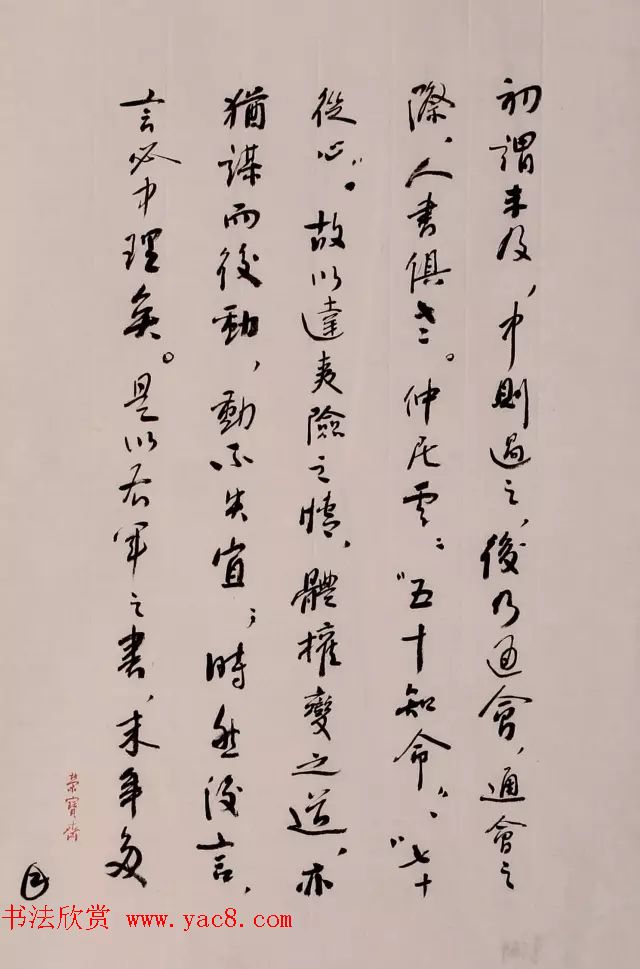 初謂未及，中則過之，後乃通會，通會之
際，人書俱老。仲尼云：“五十知命”、“七十
從心”。故以達夷險之情，體權變之道，亦
猶謀而後動，動不失宜；時然後言，
言必中理矣。是以右軍之書，末年多
榮寶齋
书法欣赏 www.yac8.com